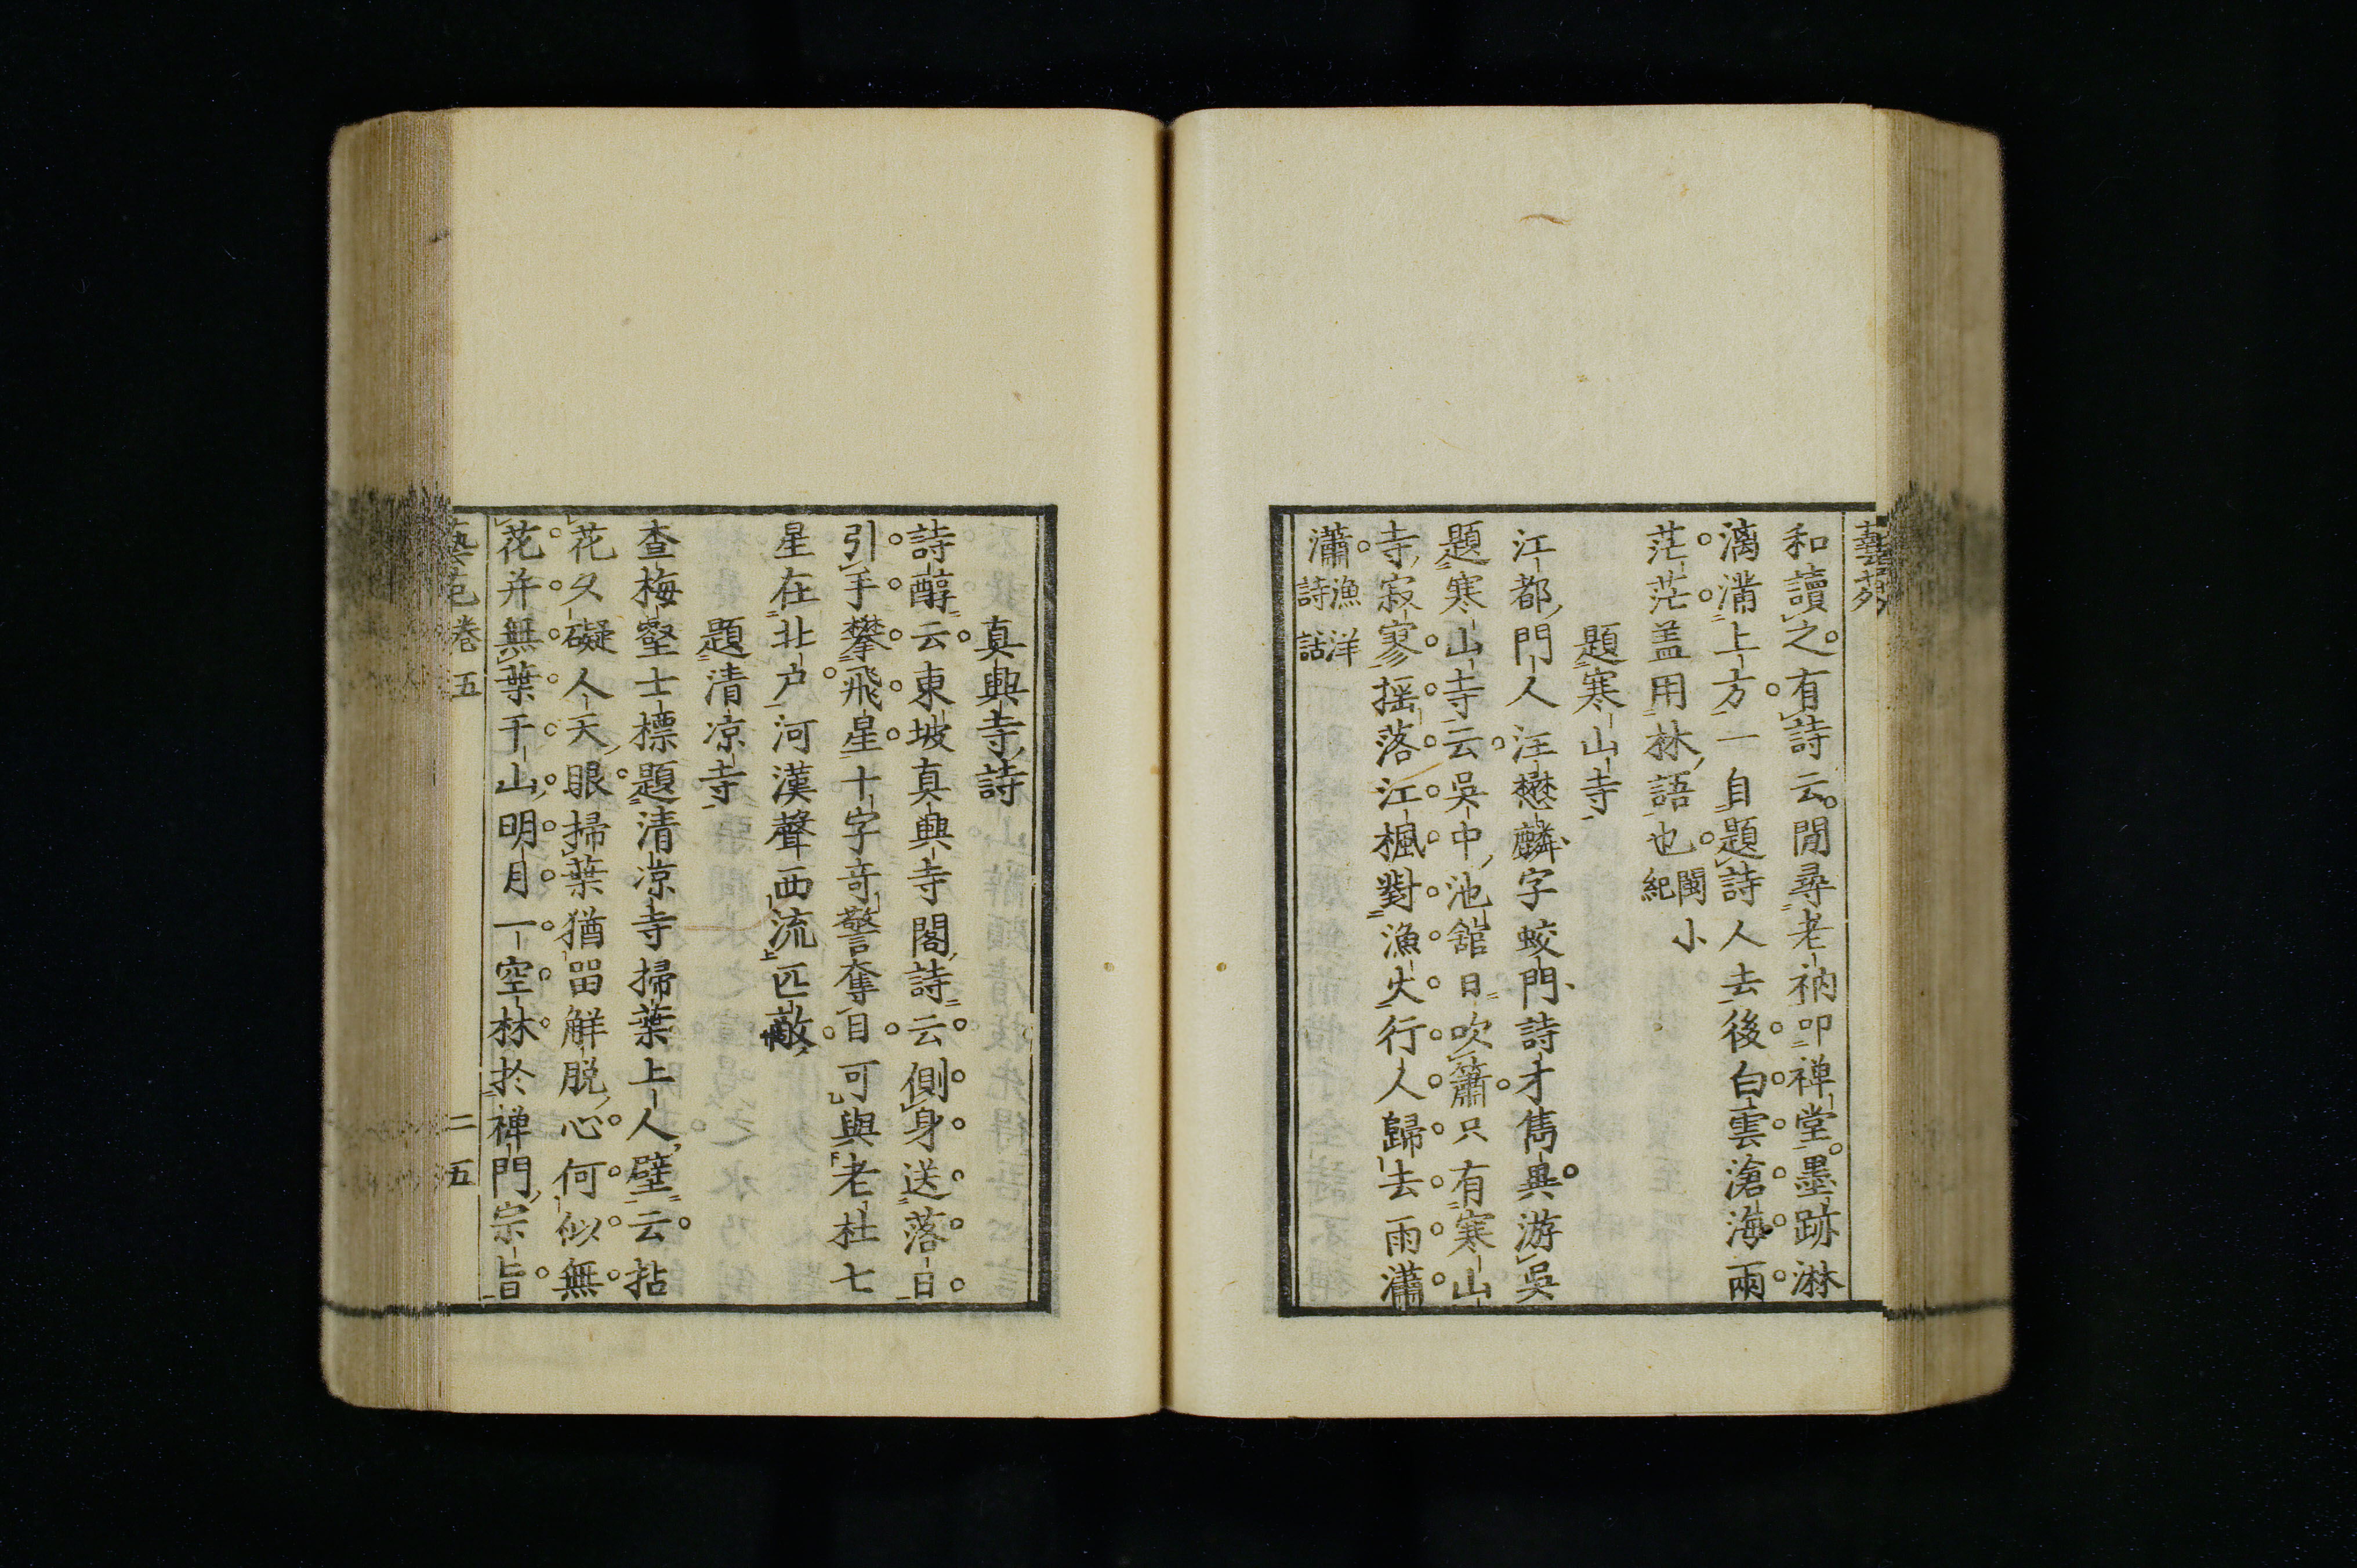 和讀之有詩云閒尋老衲叩禅堂墨跡淋
漓滿上方一自題詩人去後白雲滄海兩
茫茫盖用林語也閩小紀
題寒山寺
江都門人汪懋麟字蛟門詩才雋異游吳
題寒山寺云吳中池舘日吹簫只有寒山
寺寂寥搖落江楓對漁火行人歸去雨瀟
瀟漁洋詩話
真興寺詩
詩醇云東坡真興寺閣詩云側身送落日
引手攀飛星十字奇警奪目可與老杜七
星在北户河漢聲西流匹敵
題清凉寺
查梅壑士標題清凉寺掃葉上人壁云拈
花久礙人天眼掃葉猶畄解脱心何似無
花并無葉千山明月一空林於禅門宗旨
藝苑卷五 二五